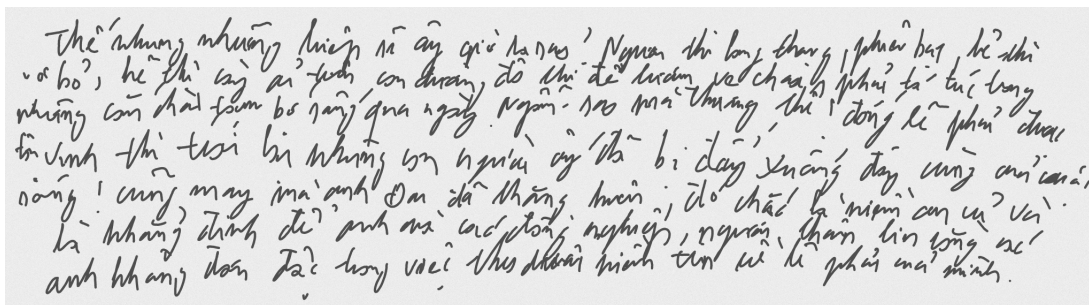 Thế nhưng những hiệp sĩ ấy giờ ra sao? Người thì long thong, phiêu bạt, kẻ thì
bỏ, kẻ thì con đường, đô thị để ve chai, phải tá túc trong
những căn nhà tạm bợ sống qua ngày. Ngôi sao mà thương thế! đáng lẽ phải được
tôn vinh thì trái lại những con người ấy đã bị đẩy xuống đáy cùng của cuộc
sống! cũng may mà anh đã thắng kiện, đó chắc là niềm an ủi và
là khẳng định để anh và các đồng nghiệp, người thân tin rằng
anh không đơn độc trong việc theo đuổi niềm tin về lẽ phải của mình.